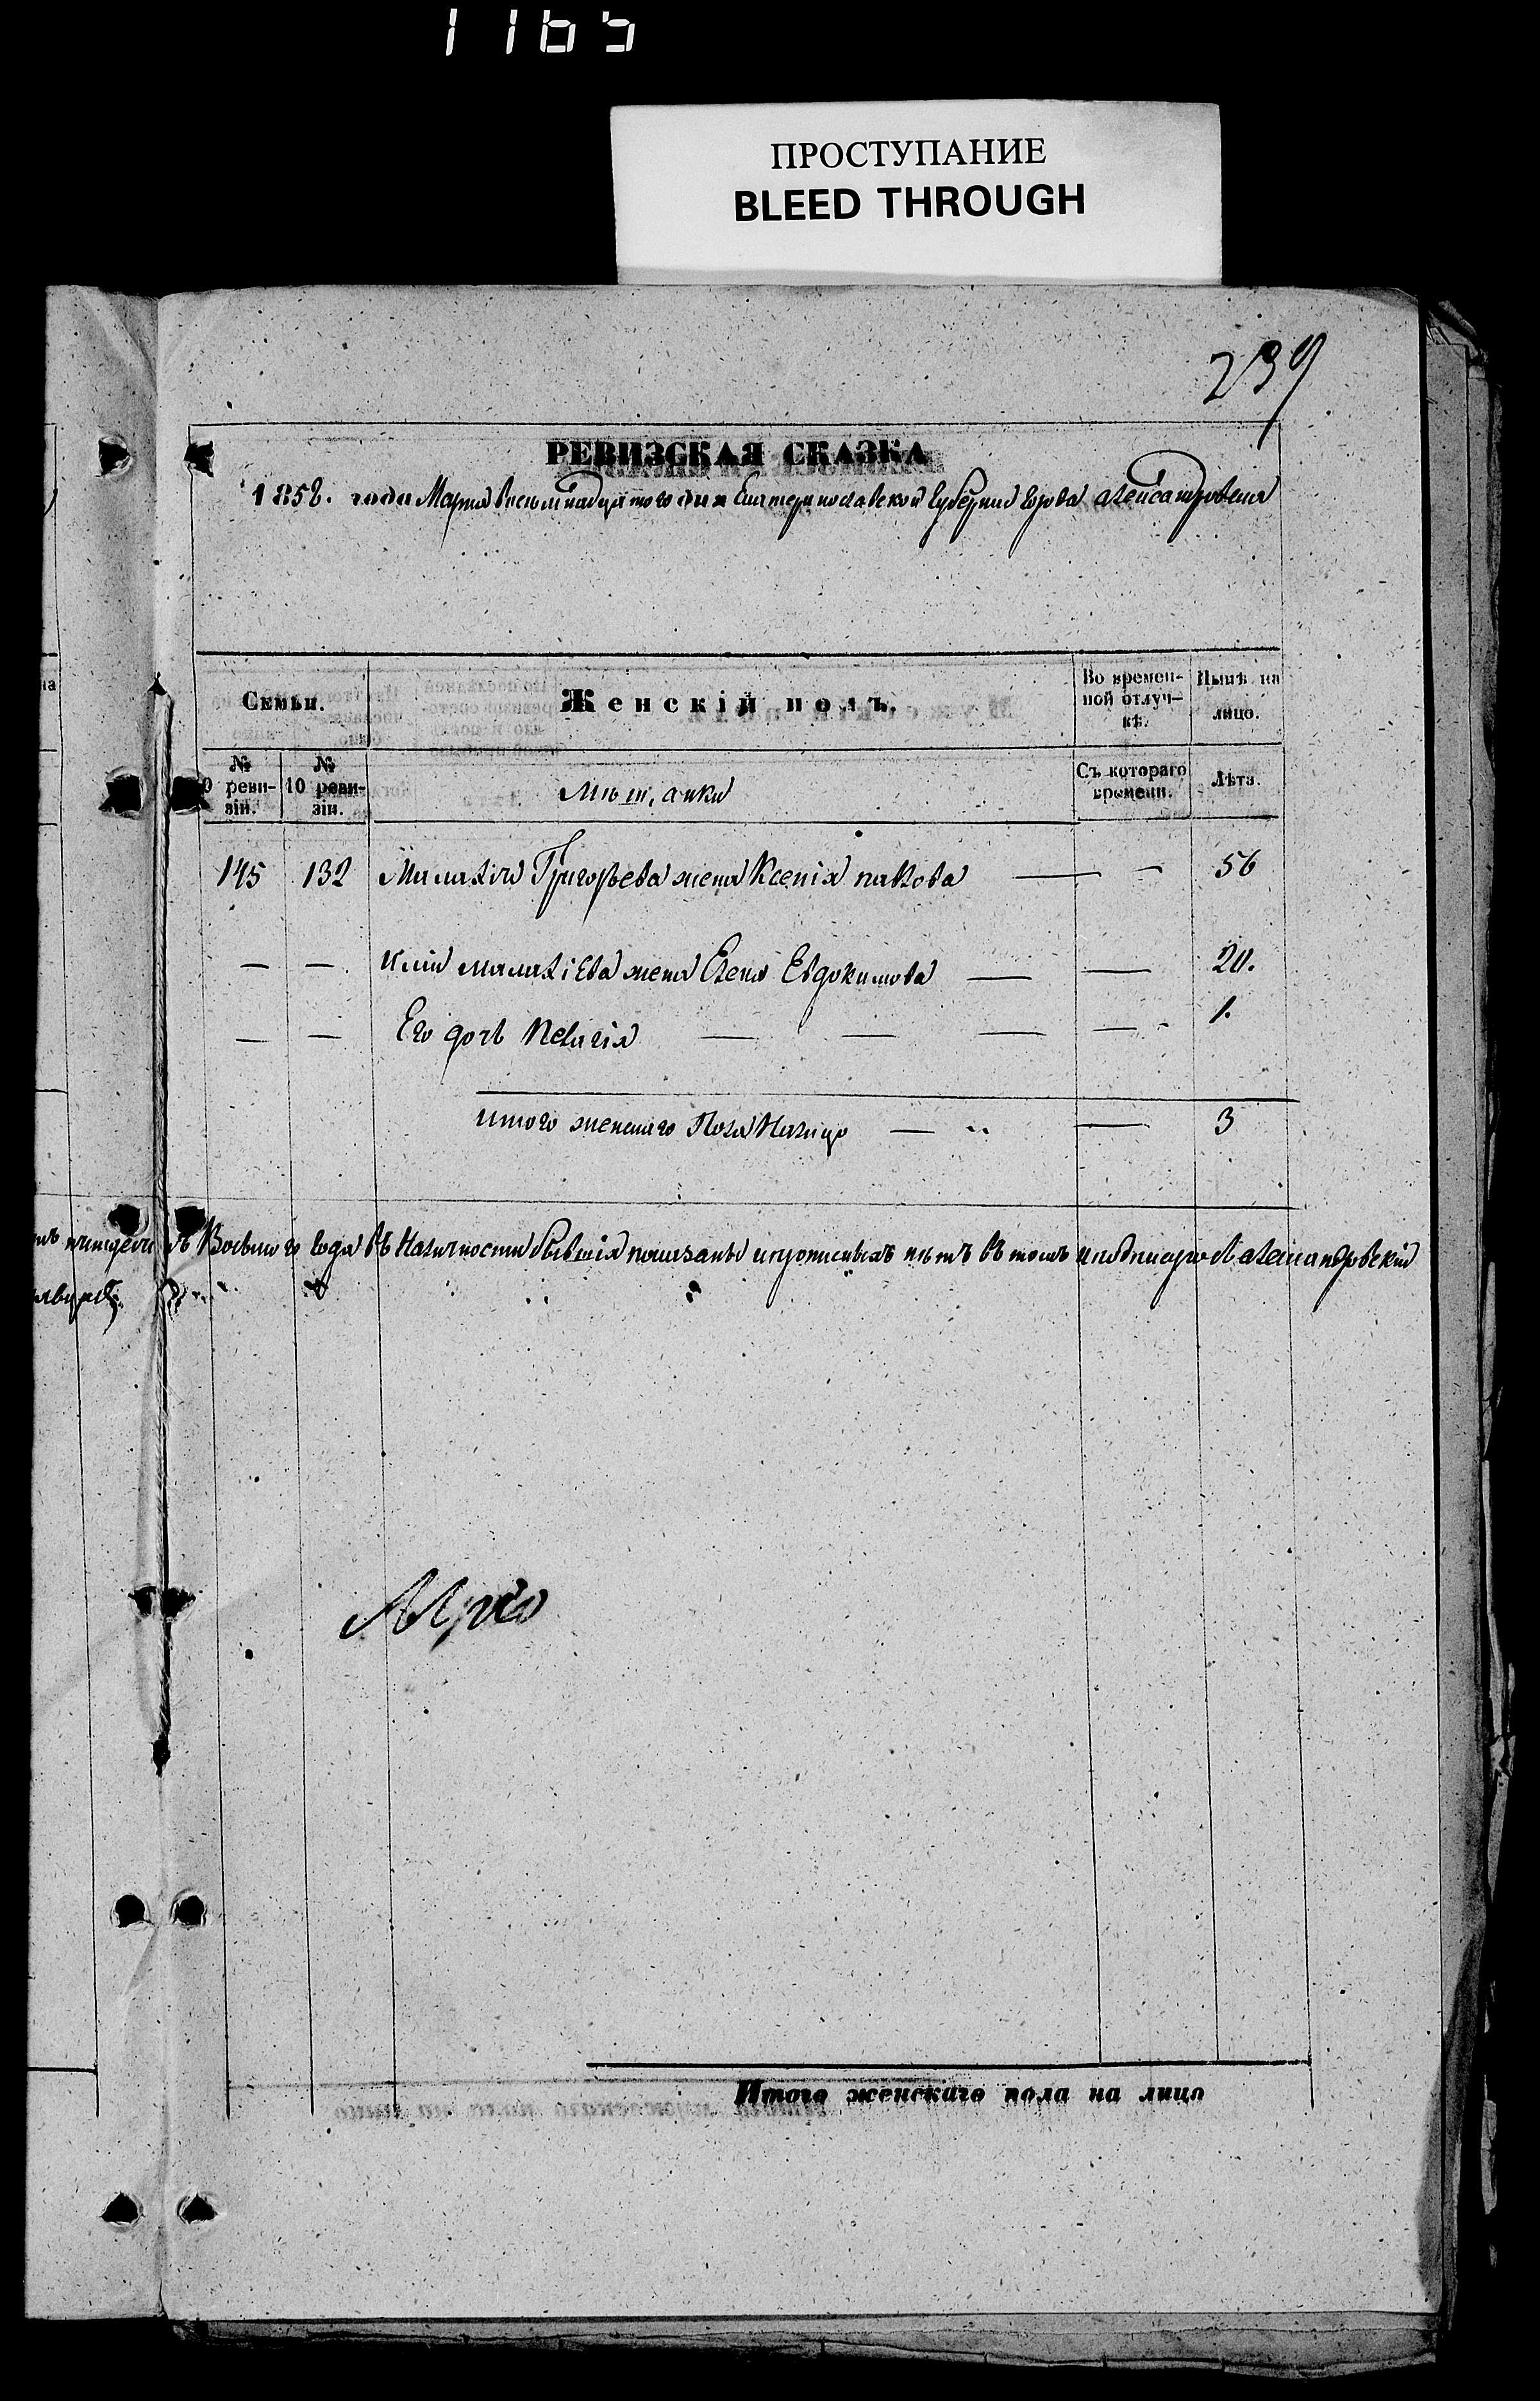 1165
ПРОСТУПАНИЕ
BLEED THROUGH
239
РЕВИЗСКАЯ СКАЗКА
1858. года Марта восьмнадцатого дня Екатеринославской Губернии Города Александровска
Семьи. Женскій полъ. Во времен-ной отлуч-кѣ. Нынѣ на лицо.
№ 9 реви-зіи. № 10 реви-зіи. Мѣщанки Съ котораго времени. Лѣта.
145 132 Малахія Григорьева жена Ксенія — — 56
— — малахіева жена Елена Евдокимова — — 20.
— — Его дочь Пелагія — — — — 1.
итого женскаго Пола Налицо — — 3
Восьмого Года въ Наличности бывшія показаны и прописныхъ нѣтъ въ томъ и подписуюсь александровскій
Итого женскаго пола на лицо